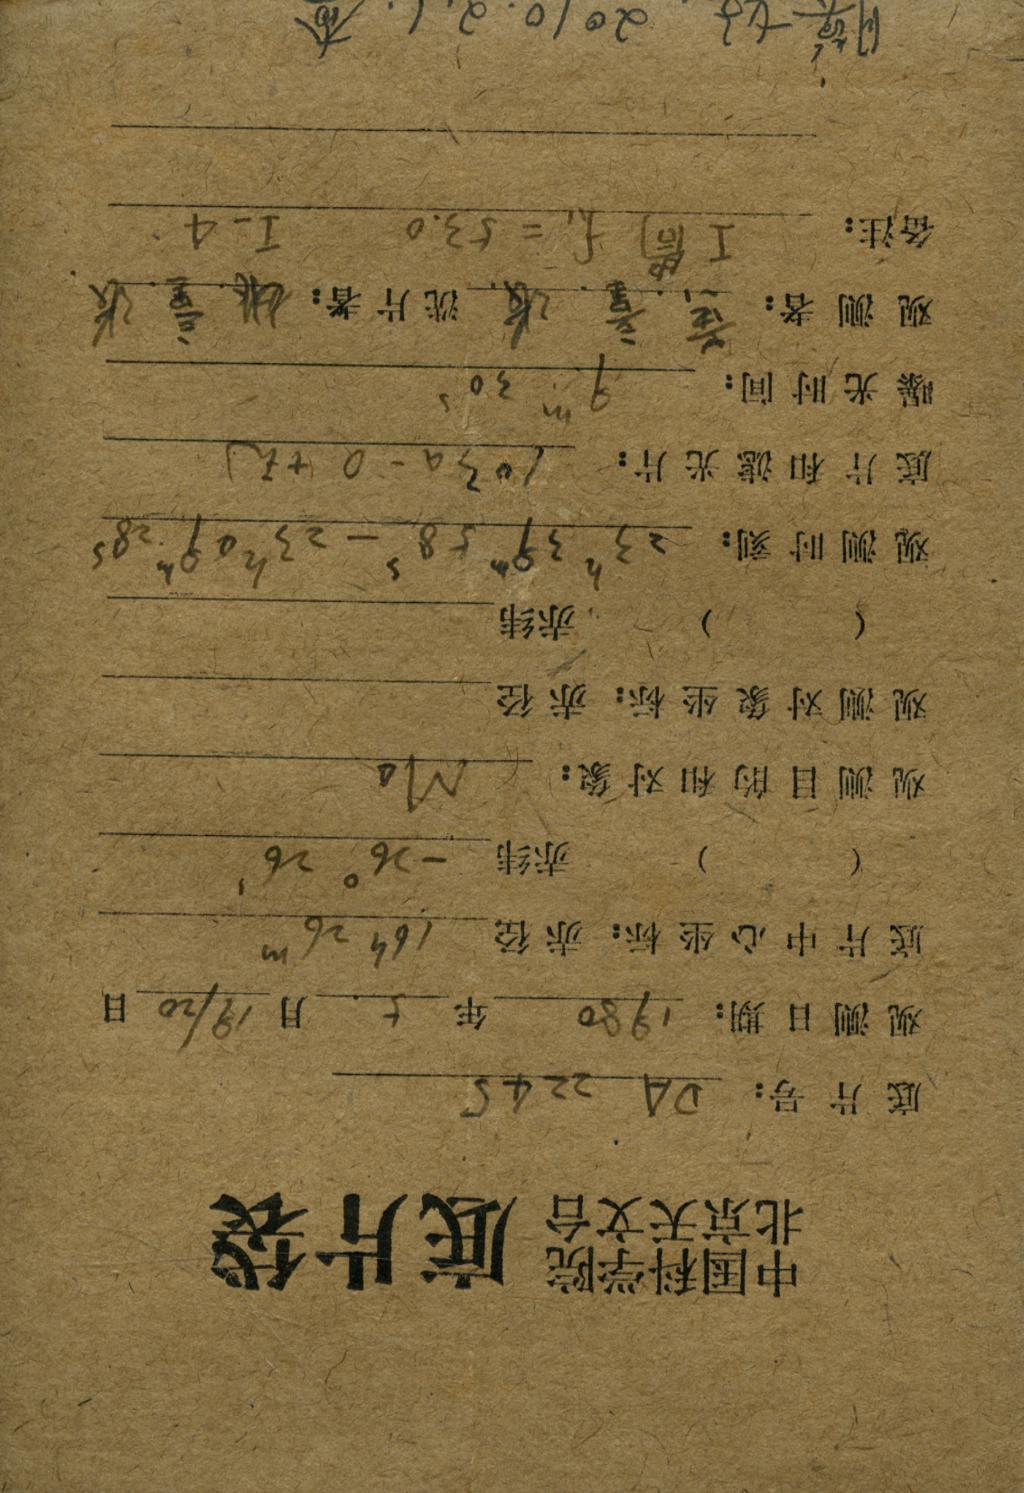 中国科学院
北京天文台 底片袋
底片号： DA 2245
观测日期： 1980 年 5 月 19/20 日
底片中心坐标：赤径 16h 26m
（ ） 赤纬 -26° 26′
观测目的和对象： Ma
观测对象坐标：赤径
（ ） 赤纬
观测时刻： 23h 39m 58s — 23h 09m 28s
底片和滤光片： 103a-O
曝光时间： 9m 30s
观测者： 洗片者：
备注： I f1 = 53.0 I-4
2010.2.1. 查